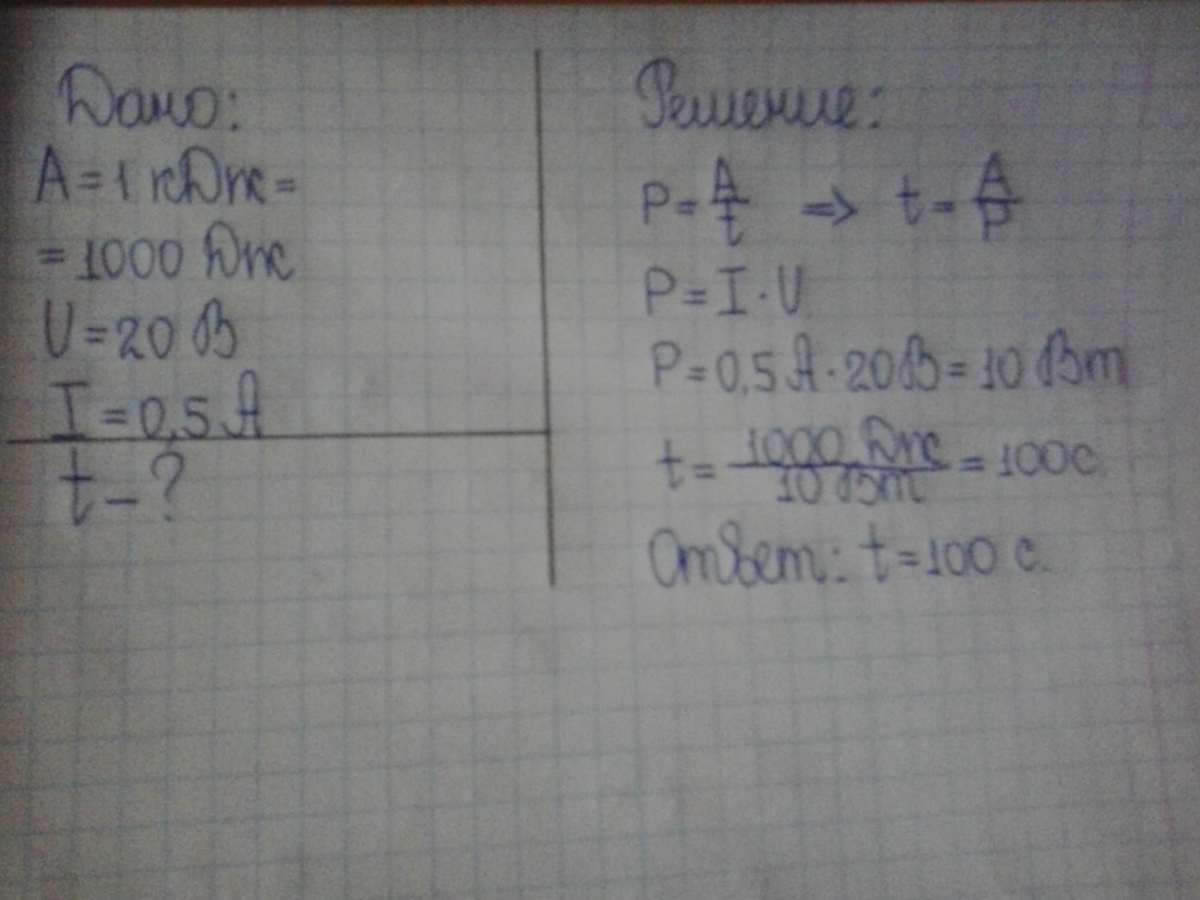 Дано:
A = 1 кДж =
= 1000 Дж
U = 20 В
I = 0,5 А
t - ?
Решение:
P = A/t => t = A/P
P = I · U
P = 0,5 А · 20 В = 10 Вт
t = 1000 Дж / 10 Вт = 100 с
Ответ: t = 100 с.